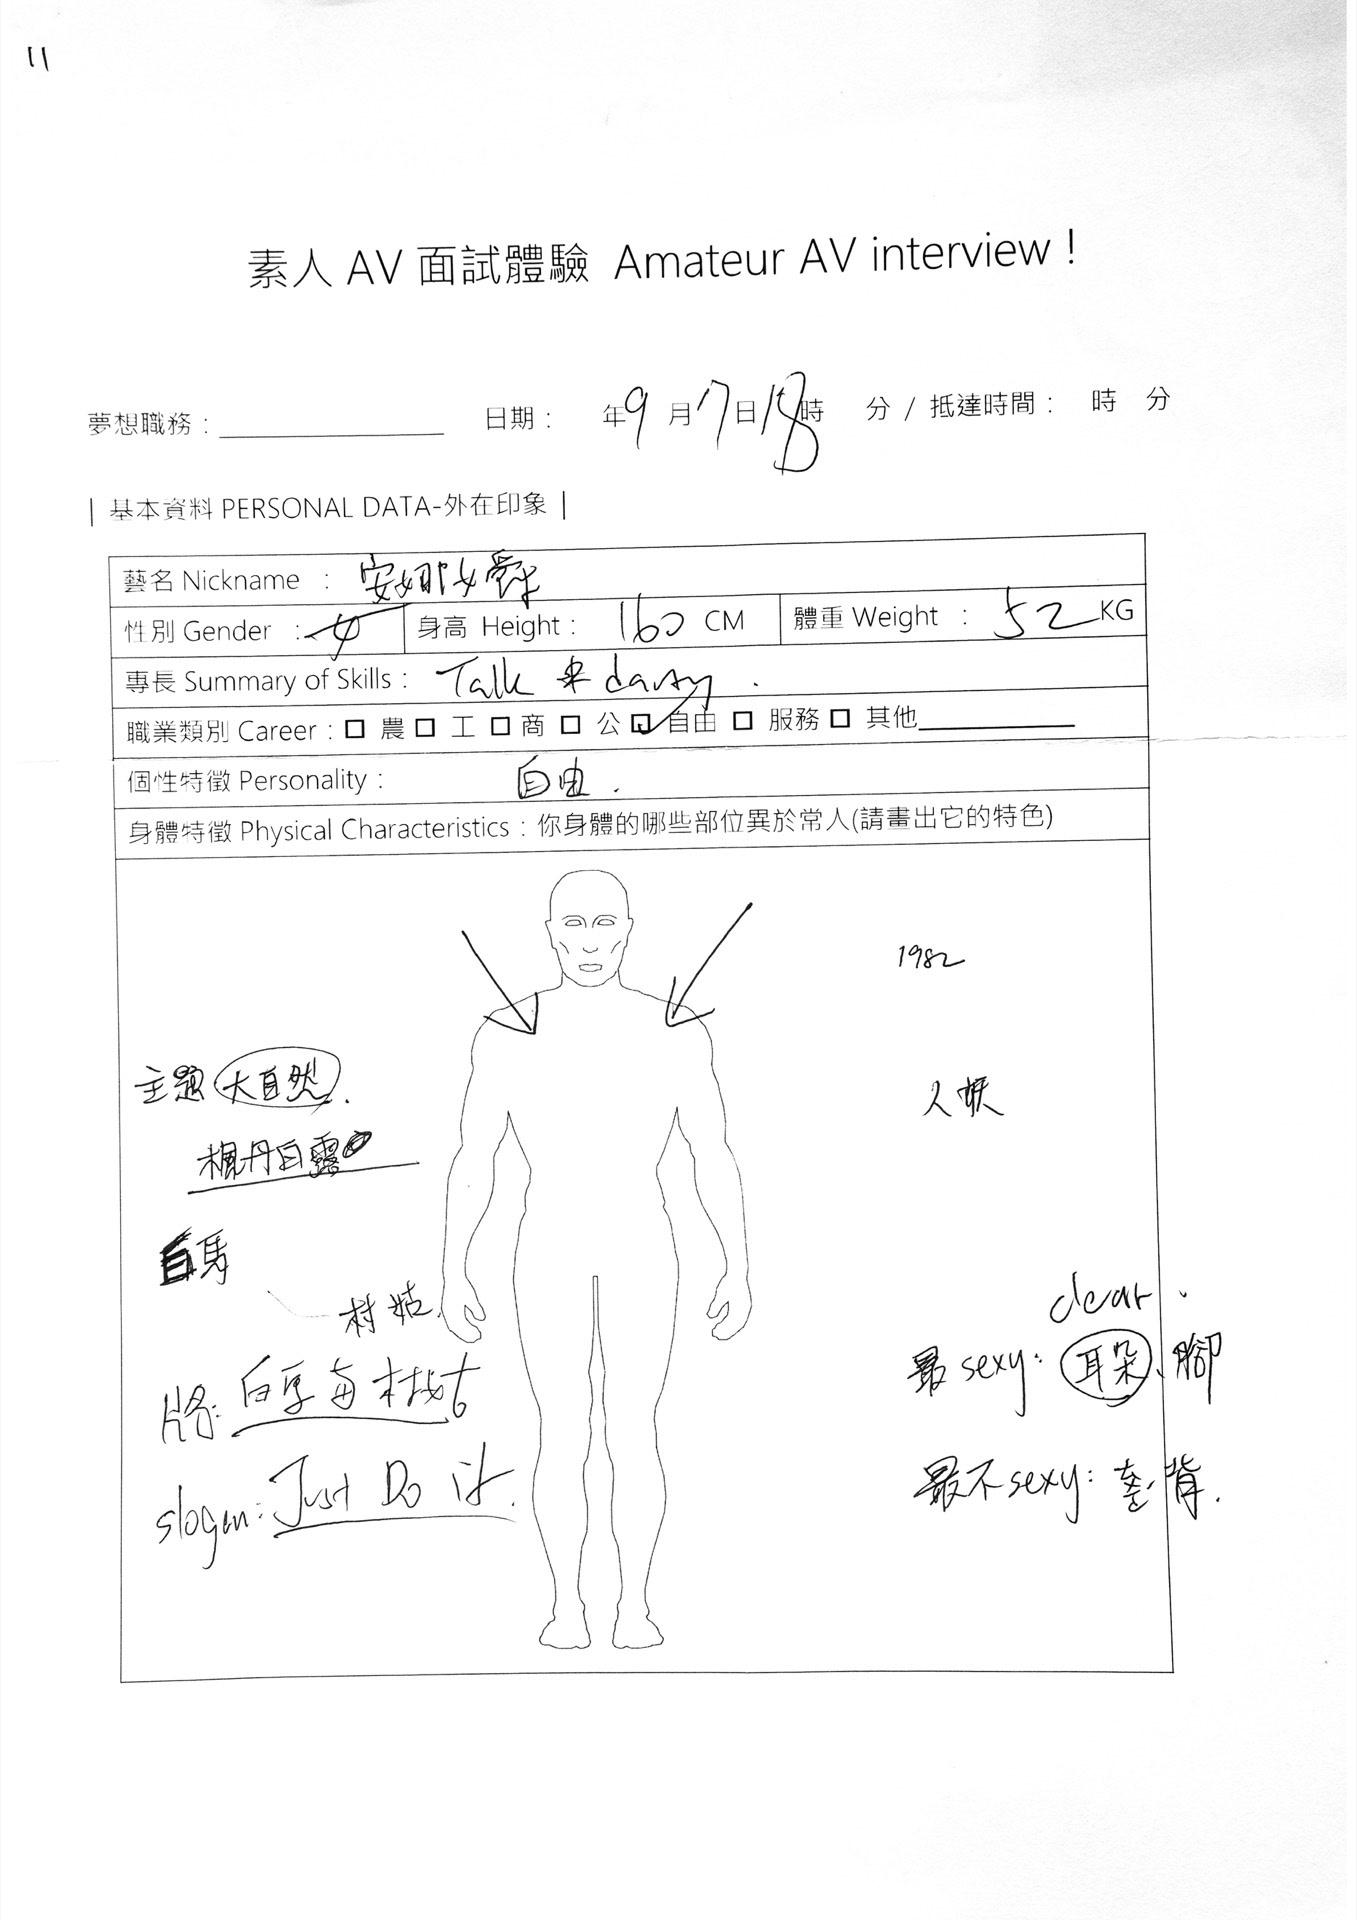 11
素人 AV 面試體驗 Amateur AV interview !
夢想職務：＿＿＿＿＿ 日期： 年 9 月 7 日 18 時 分 / 抵達時間： 時 分
| 基本資料 PERSONAL DATA-外在印象 |
藝名 Nickname ： 安娜
性別 Gender ： 女 身高 Height： 160 CM 體重 Weight ： 52 KG
專長 Summary of Skills： Talk
職業類別 Career：□ 農 □ 工 □ 商 □ 公 ☑ 自由 □ 服務 □ 其他＿＿＿＿＿
個性特徵 Personality： 自由.
身體特徵 Physical Characteristics：你身體的哪些部位異於常人(請畫出它的特色)
1982
主題 大自然.
人妖
楓丹白露
白馬
村姑.
clear.
最 sexy: 耳朵、腳
片名: 村姑
最不 sexy: 背.
slogen: Just Do it.